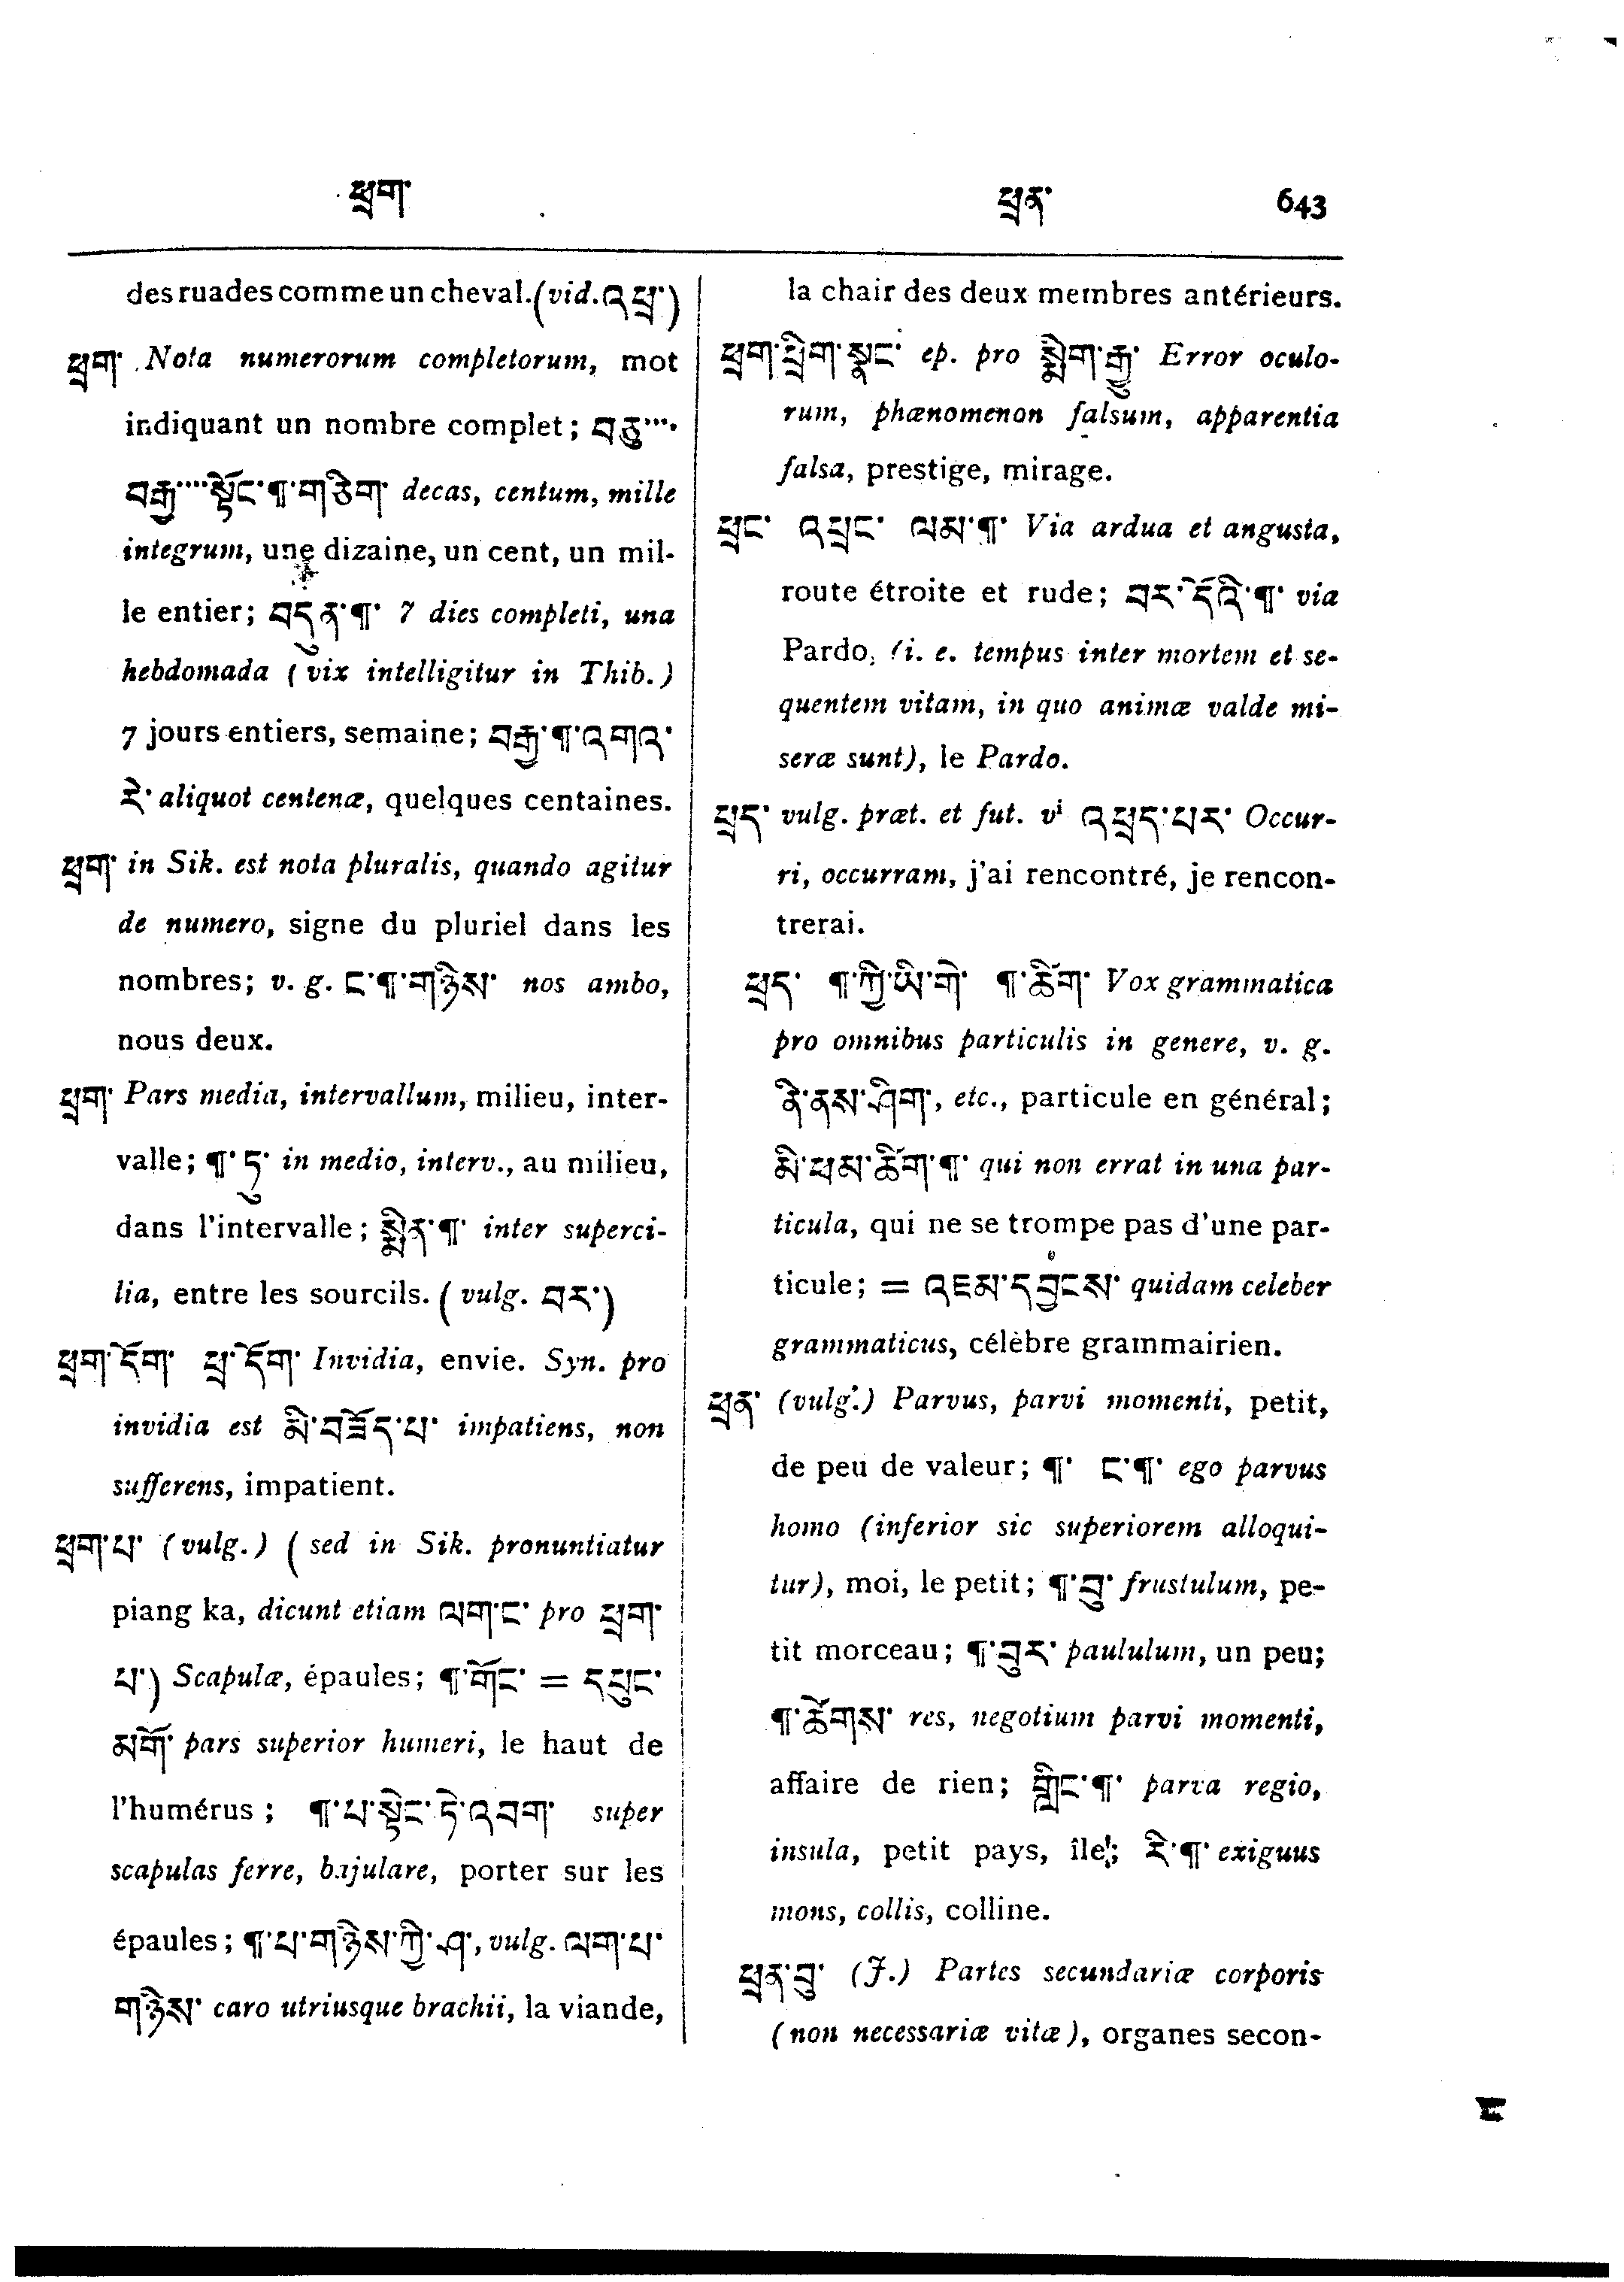 ཕྲག་
ཕྲན་ 643
des ruades comme un cheval. (vid. འཕྲ་)
ཕྲག་ Nota numerorum completorum, mot
indiquant un nombre complet; བཅུ་་་་
བརྒྱ་་་་སྟོང་¶་གཅིག་ decas, centum, mille
integrum, une dizaine, un cent, un mil-
le entier; བདུན་¶་ 7 dies completi, una
hebdomada (vix intelligitur in Thib.)
7 jours entiers, semaine; བརྒྱ་¶་འགའ་
རེ་ aliquot centenæ, quelques centaines.
ཕྲག་ in Sik. est nota pluralis, quando agitur
de numero, signe du pluriel dans les
nombres; v. g. ང་¶་གཉིས་ nos ambo,
nous deux.
ཕྲག་ Pars media, intervallum, milieu, inter-
valle; ¶་ཏུ་ in medio, interv., au milieu,
dans l'intervalle; སྨིན་¶་ inter superci-
lia, entre les sourcils. (vulg. བར་)
ཕྲག་དོག་ ཕྲ་དོག་ Invidia, envie. Syn. pro
invidia est མི་བཟོད་པ་ impatiens, non
sufferens, impatient.
ཕྲག་པ་ (vulg.) (sed in Sik. pronuntiatur
piang ka, dicunt etiam ལག་ང་ pro ཕྲག་
པ་) Scapulæ, épaules; ¶་གོང་ = དཔུང་
མགོ་ pars superior humeri, le haut de
l'humérus; ¶་པ་སྟེང་ཏེ་འབག་ super
scapulas ferre, bajulare, porter sur les
épaules; ¶་པ་གཉིས་ཀྱི་ཤ་, vulg. ལག་པ་
གཉིས་ caro utriusque brachii, la viande,
la chair des deux membres antérieurs.
ཕྲག་ཕྲིག་སྣང་ ep. pro སྨིག་རྒྱུ་ Error oculo-
rum, phænomenon falsum, apparentia
falsa, prestige, mirage.
ཕྲང་ འཕྲང་ ལམ་¶་ Via ardua et angusta,
route étroite et rude; བར་དོའི་¶་ via
Pardo, (i. e. tempus inter mortem et se-
quentem vitam, in quo animæ valde mi-
seræ sunt), le Pardo.
ཕྲད་ vulg. præt. et fut. vi འཕྲད་པར་ Occur-
ri, occurram, j'ai rencontré, je rencon-
trerai.
ཕྲད་ ¶་ཀྱི་ཡི་གེ་ ¶་ཚིག་ Vox grammatica
pro omnibus particulis in genere, v. g.
ནི་ནས་ཤིག་, etc., particule en général;
མི་ཕམ་ཚིག་¶་ qui non errat in una par-
ticula, qui ne se trompe pas d'une par-
ticule; = འཇམ་དབྱངས་ quidam celeber
grammaticus, célèbre grammairien.
ཕྲན་ (vulg.) Parvus, parvi momenti, petit,
de peu de valeur; ¶་ ང་¶་ ego parvus
homo (inferior sic superiorem alloqui-
tur), moi, le petit; ¶་བུ་ frustulum, pe-
tit morceau; ¶་བུར་ paululum, un peu;
¶་ཚེགས་ res, negotium parvi momenti,
affaire de rien; གླིང་¶་ parva regio,
insula, petit pays, île; རི་¶་ exiguus
mons, collis, colline.
ཕྲན་བུ་ (J.) Partes secundariæ corporis
(non necessariæ vitæ), organes secon-